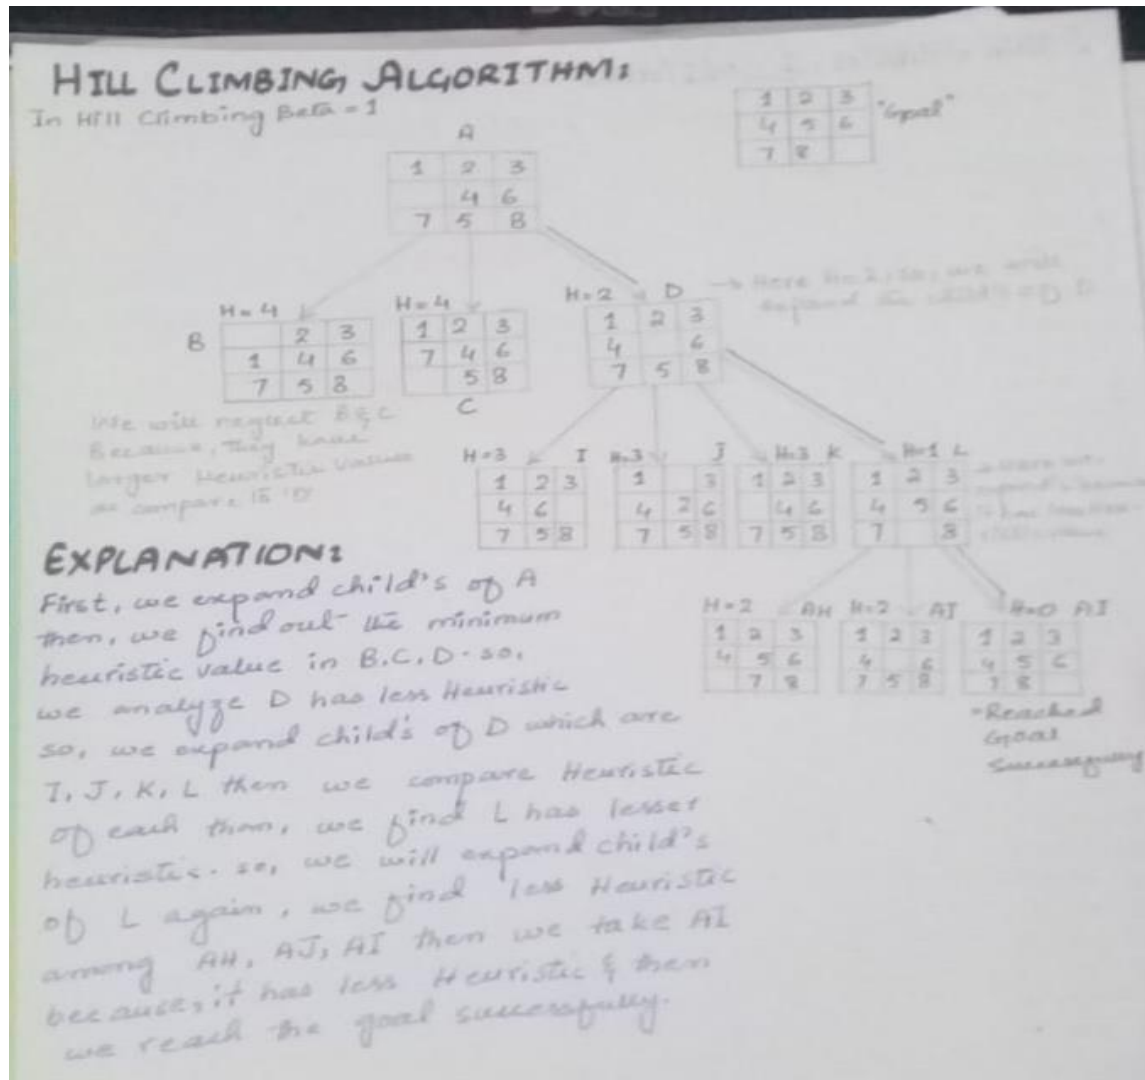 HILL CLIMBING ALGORITHM:
In Hill Climbing Beta = 1
1 2 3
4 5 6
7 8
"Goal"
A
1 2 3
4 6
7 5 8
H=4
B
2 3
1 4 6
7 5 8
H=4
1 2 3
7 4 6
5 8
C
H=2 D
1 2 3
4 6
7 5 8
→ Here H=2, so, we will
expand the
We will neglect B & C
Because, they have
larger Heuristic values
as compare to D
H=3 I
1 2 3
4 6
7 5 8
H=3 J
1 3
4 2 6
7 5 8
H=3 K
1 2 3
4 6
7 5 8
H=1 L
1 2 3
4 5 6
7 8
H=2 AH
1 2 3
4 5 6
7 8
H=2 AJ
1 2 3
4 6
7 5 8
H=0 AI
1 2 3
4 5 6
7 8
"Reached
Goal
Successfully
EXPLANATION:
First, we expand child's of A
then, we find out the minimum
heuristic value in B.C.D. so,
we analyze D has less Heuristic
so, we expand child's of D which are
I, J, K, L then we compare Heuristic
of each then, we find L has lesser
heuristic. so, we will expand child's
of L again, we find less Heuristic
among AH, AJ, AI then we take AI
because, it has less Heuristic & then
we reach the goal successfully.